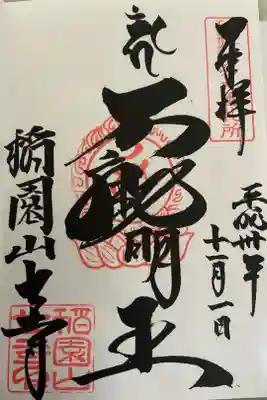 奉拝
平成卅年
十一月一日
不動明王
稲園山七寺
稲園山
七寺